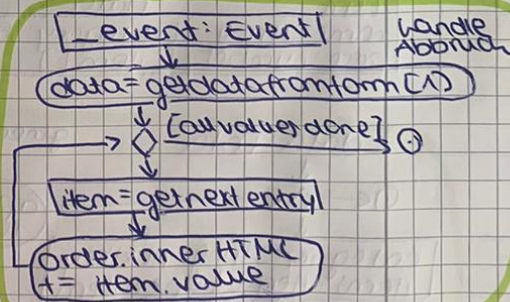 _event: Event
handle
Abbruch
data=getdatafromform(1)
[allvaluesdone]
item=getnextentry
order.innerHTML
+= item.value